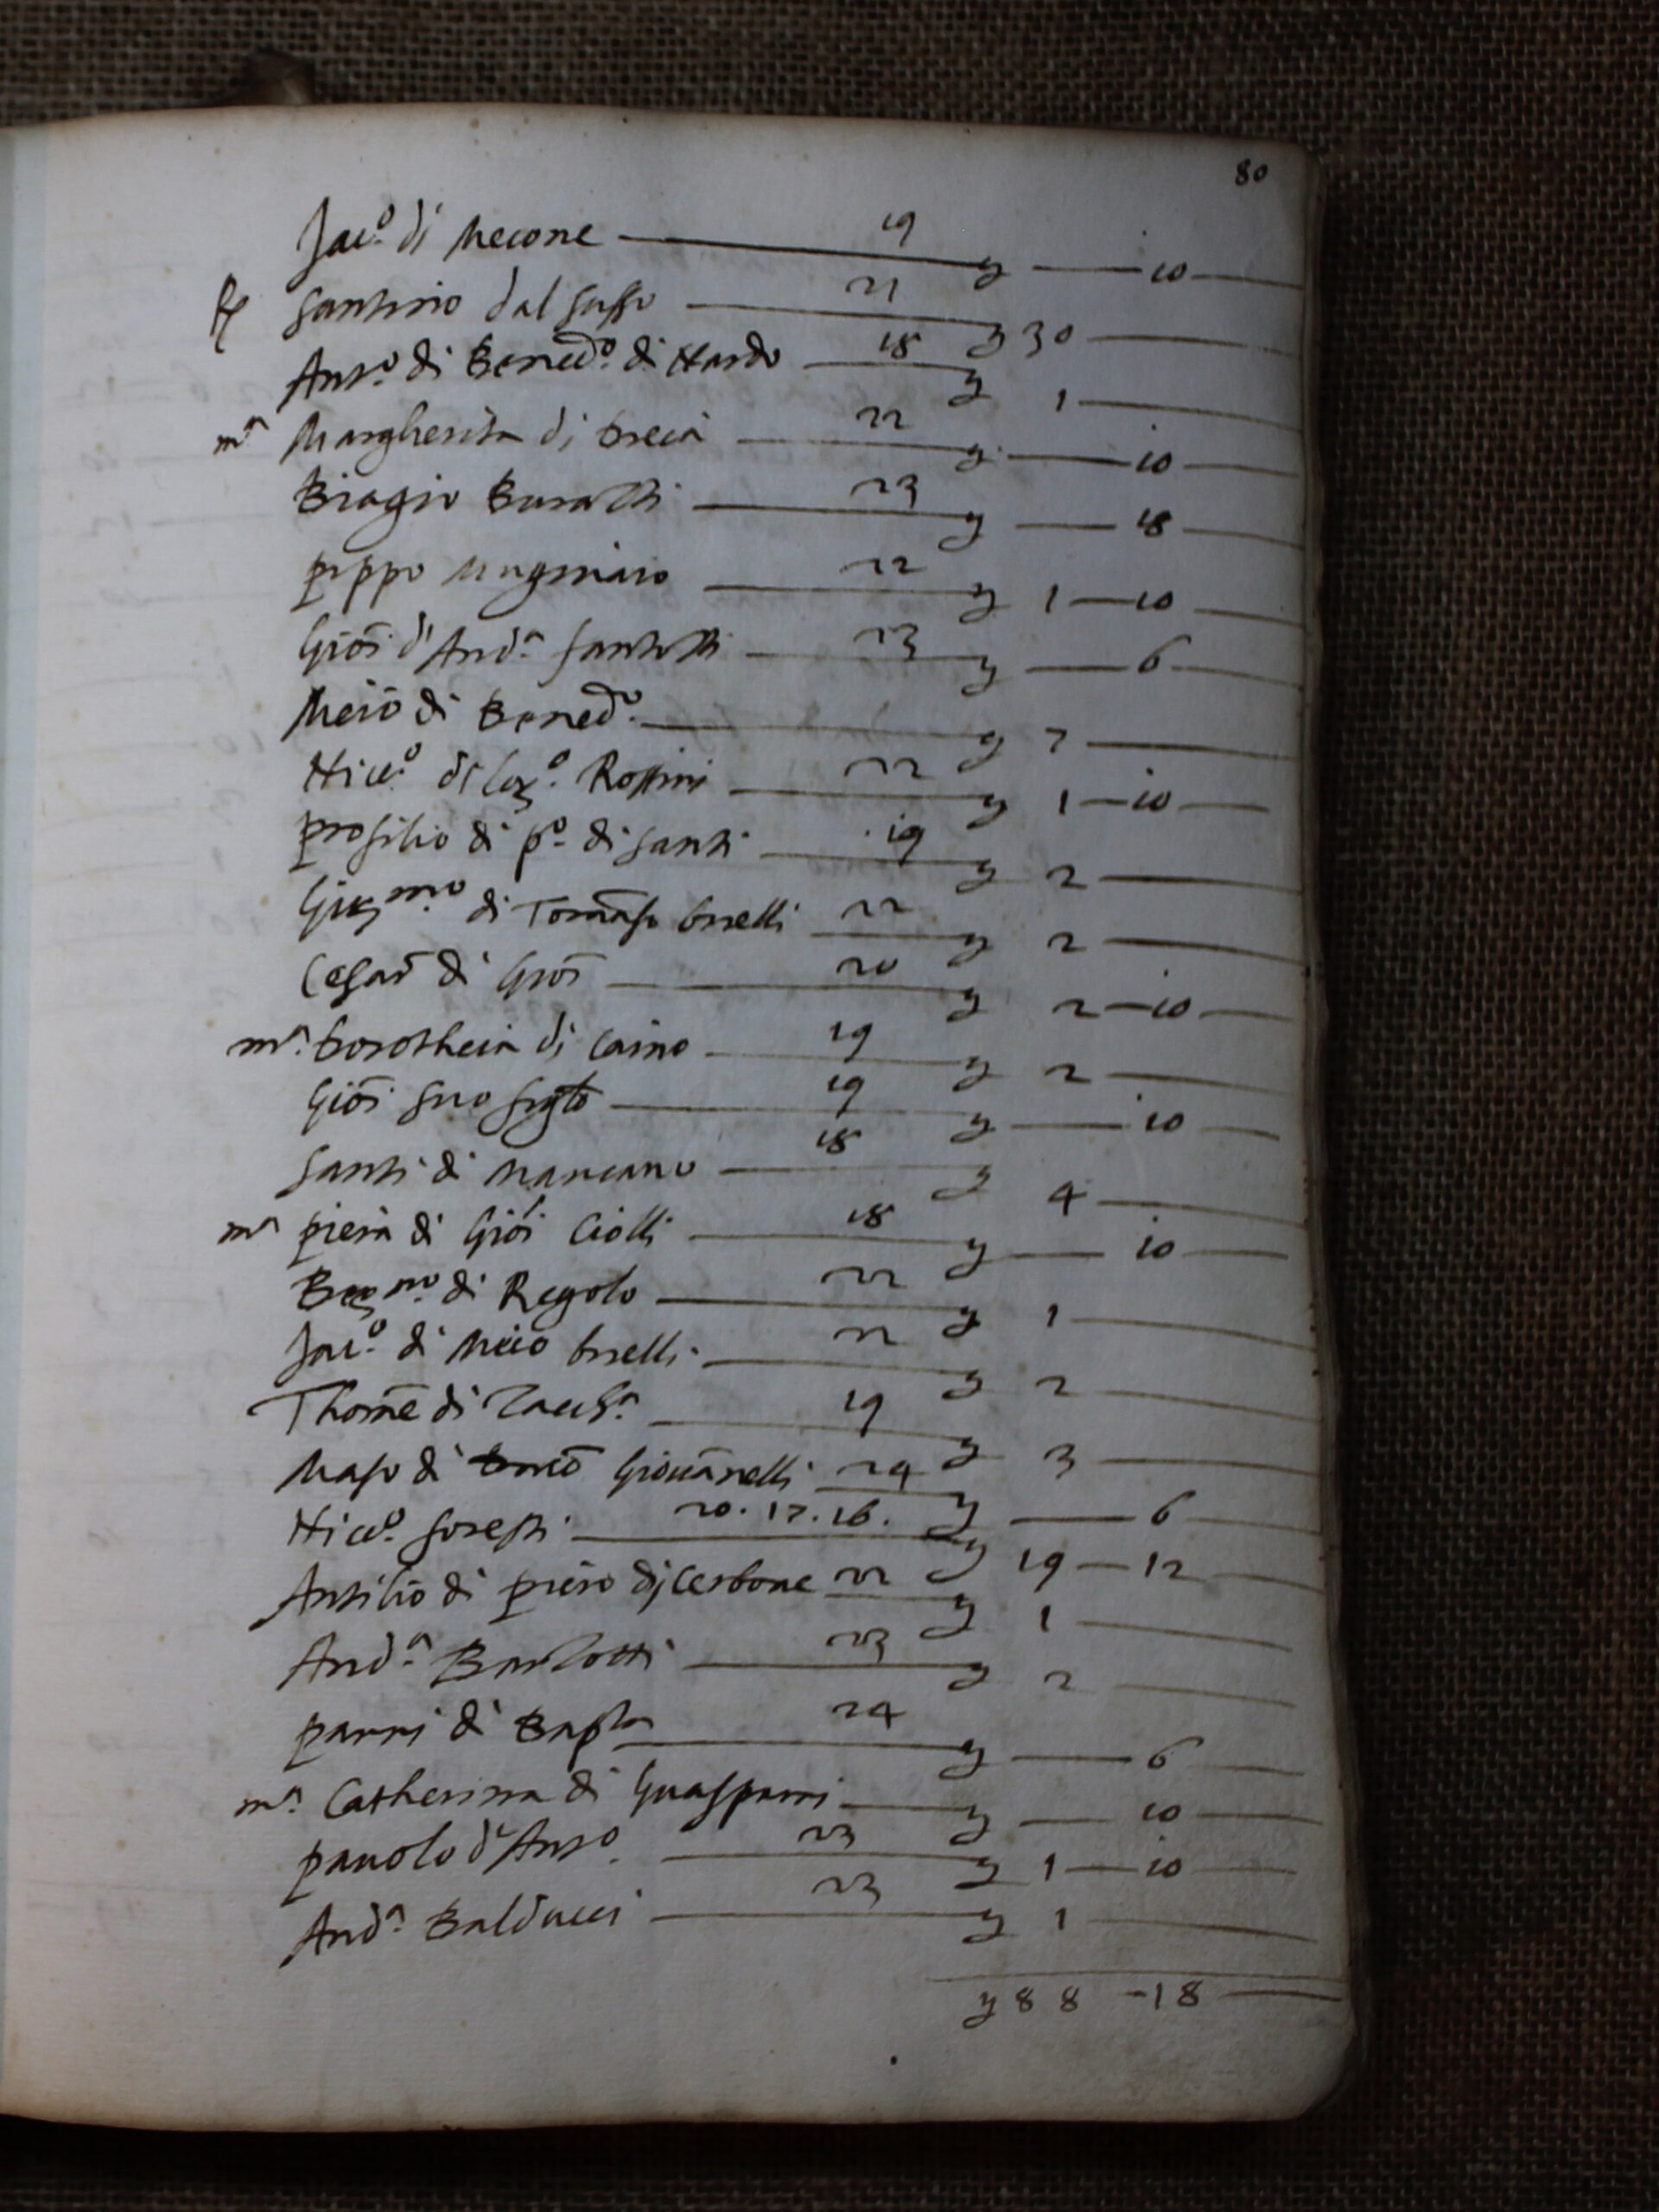 80
Jac.º di Mecone — 19 y — 10 —
Santino dal Sasso — 21 y 30 —
Ant.º di Bened.º di Nardo — 18 y 1 —
mª Margherita di — 22 y — 10 —
Biagio Buratti — 23 y — 18 —
pippo Mugniaio — 22 y 1 — 10 —
Giõi d'And.ª Santotti — 23 y — 6 —
Meiõ di Bened.º — y 7 —
Nic.º di Lor.º Rossini — 22 y 1 — 10 —
di p.º di Santi — 19 y 2 —
di Tomãso — 22 y 2 —
Cesar̃ di Giõi — 20 y 2 — 10 —
mª. Dorotheia di Caino — 19 y 2 —
Giõi suo figlo — 19 y — 10 —
Santi di — 18 y 4 —
mª piera di Giõi Ciolli — 18 y — 10 —
di Regolo — 22 y 1 —
Jac.º di Meio — 22 y 2 —
Thome di Zacch.ª — 19 y 3 —
Maso di Giouãnelli — 24 y — 6 —
Nic.º — 20. 17. 16. y 19 — 12 —
di piero di Cerbone 22 y 1 —
And.ª Barlotti — 23 y 2 —
parri di Bapt.ª — 24 y — 6 —
mª. Catherina di Guasparri — y — 10 —
pauolo d'Ant.º — 23 y 1 — 10 —
And.ª Balducci — 23 y 1 —
y 88 - 18 —